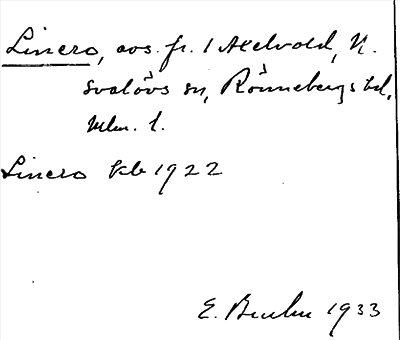 Linero, avs. fr. 1 Axelvold, N.
Svalövs sn, Rönnebergs hd,
Mlm. l.
Linero kb 1922
E. 1933